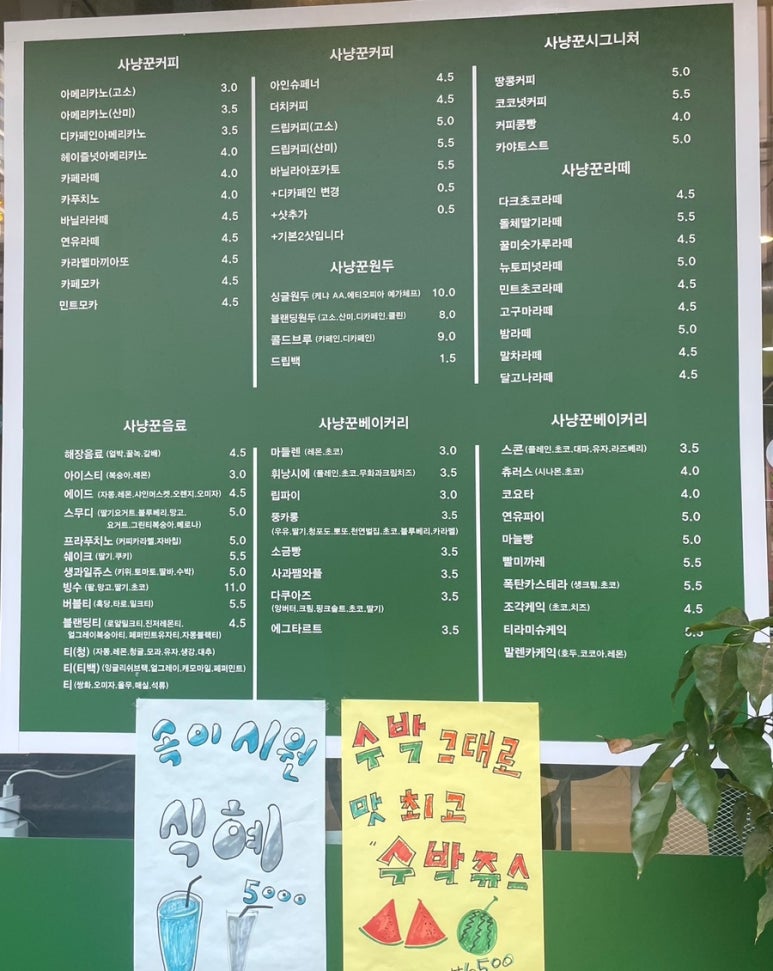 사냥꾼커피
아메리카노(고소) 3.0
아메리카노(산미) 3.5
디카페인아메리카노 3.5
헤이즐넛아메리카노 4.0
카페라떼 4.0
카푸치노 4.0
바닐라라떼 4.5
연유라떼 4.5
카라멜마끼아또 4.5
카페모카 4.5
민트모카 4.5
사냥꾼커피
아인슈페너 4.5
더치커피 4.5
드립커피(고소) 5.0
드립커피(산미) 5.5
바닐라아포카토 5.5
+디카페인 변경 0.5
+샷추가 0.5
+기본2샷입니다
사냥꾼원두
싱글원두 (케냐 AA.에티오피아 예가체프) 10.0
블랜딩원두 (고소.산미.디카페인.클린) 8.0
콜드브루 (카페인.디카페인) 9.0
드립백 1.5
사냥꾼시그니쳐
땅콩커피 5.0
코코넛커피 5.5
커피콩빵 4.0
카야토스트 5.0
사냥꾼라떼
다크초코라떼 4.5
돌체딸기라떼 5.5
꿀미숫가루라떼 4.5
뉴토피넛라떼 5.0
민트초코라떼 4.5
고구마라떼 4.5
밤라떼 5.0
말차라떼 4.5
달고나라떼 4.5
사냥꾼음료
해장음료 (얼박.꿀녹.갈배) 4.5
아이스티 (복숭아.레몬) 3.0
에이드 (자몽.레몬.샤인머스켓.오렌지.오미자) 4.5
스무디 (딸기요거트.블루베리.망고. 5.0
요거트.그린티복숭아.메로나)
프라푸치노 (커피카라멜.자바칩) 5.0
쉐이크 (딸기.쿠키) 5.5
생과일쥬스 (키위.토마토.딸바.수박) 5.0
빙수 (팥.망고.딸기.초코) 11.0
버블티 (흑당.타로.밀크티) 5.5
블랜딩티 (로얄밀크티.진저레몬티. 4.5
얼그레이복숭아티.페퍼민트유자티.자몽블랙티)
티(청) (자몽.레몬.청귤.모과.유자.생강.대추)
티(티백) (잉글리쉬브랙.얼그레이.캐모마일.페퍼민트)
티 (쌍화.오미자.율무.매실.석류)
사냥꾼베이커리
마들렌 (레몬.초코) 3.0
휘낭시에 (플레인.초코.무화과크림치즈) 3.5
립파이 3.0
뚱카롱 3.5
(우유.딸기.청포도.뽀또.천연벌집.초코.블루베리.카라멜)
소금빵 3.5
사과쨈와플 3.5
다쿠아즈 3.5
(앙버터.크림.핑크솔트.초코.딸기)
에그타르트 3.5
사냥꾼베이커리
스콘 (플레인.초코.대파.유자.라즈베리) 3.5
츄러스 (시나몬.초코) 4.0
코요타 4.0
연유파이 5.0
마늘빵 5.0
빨미까레 5.5
폭탄카스테라 (생크림.초코) 5.5
조각케익 (초코.치즈) 4.5
티라미슈케익
말렌카케익 (호두.코코아.레몬)
속이 시원
식혜
5000
수박 그대로
맛 최고
"수박쥬스